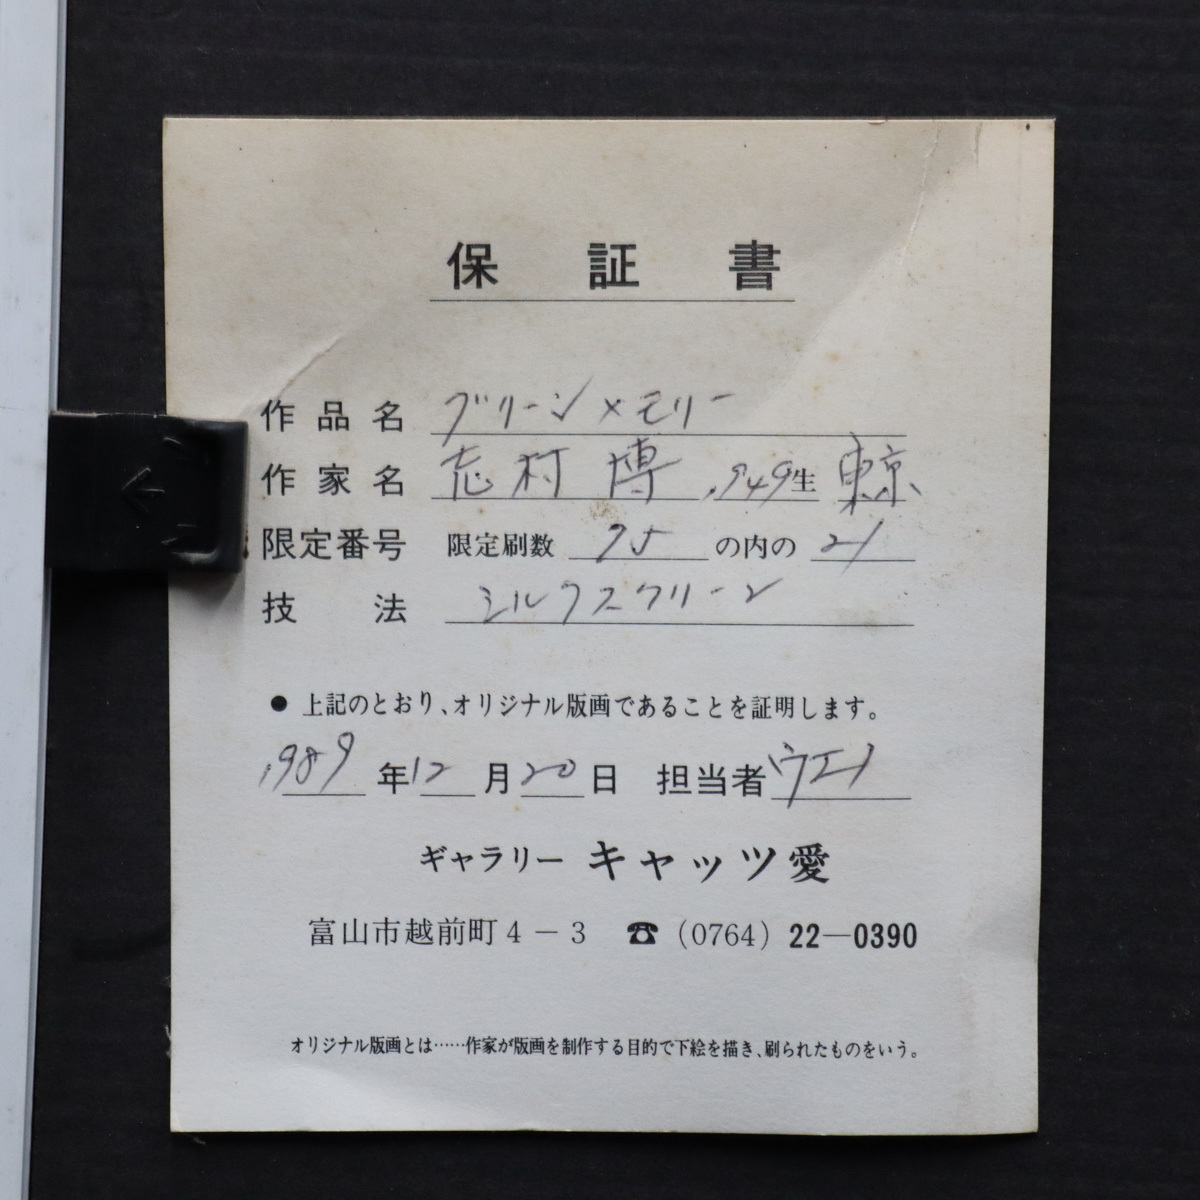 保証書
作品名 グリーンメモリー
作家名 志村博 1949生 東京
限定番号 限定刷数 75 の内の 21
技法 シルクスクリーン
● 上記のとおり、オリジナル版画であることを証明します。
1989年12月20日 担当者
ギャラリー キャッツ愛
富山市越前町4-3 ☎(0764)22-0390
オリジナル版画とは……作家が版画を制作する目的で下絵を描き、刷られたものをいう。